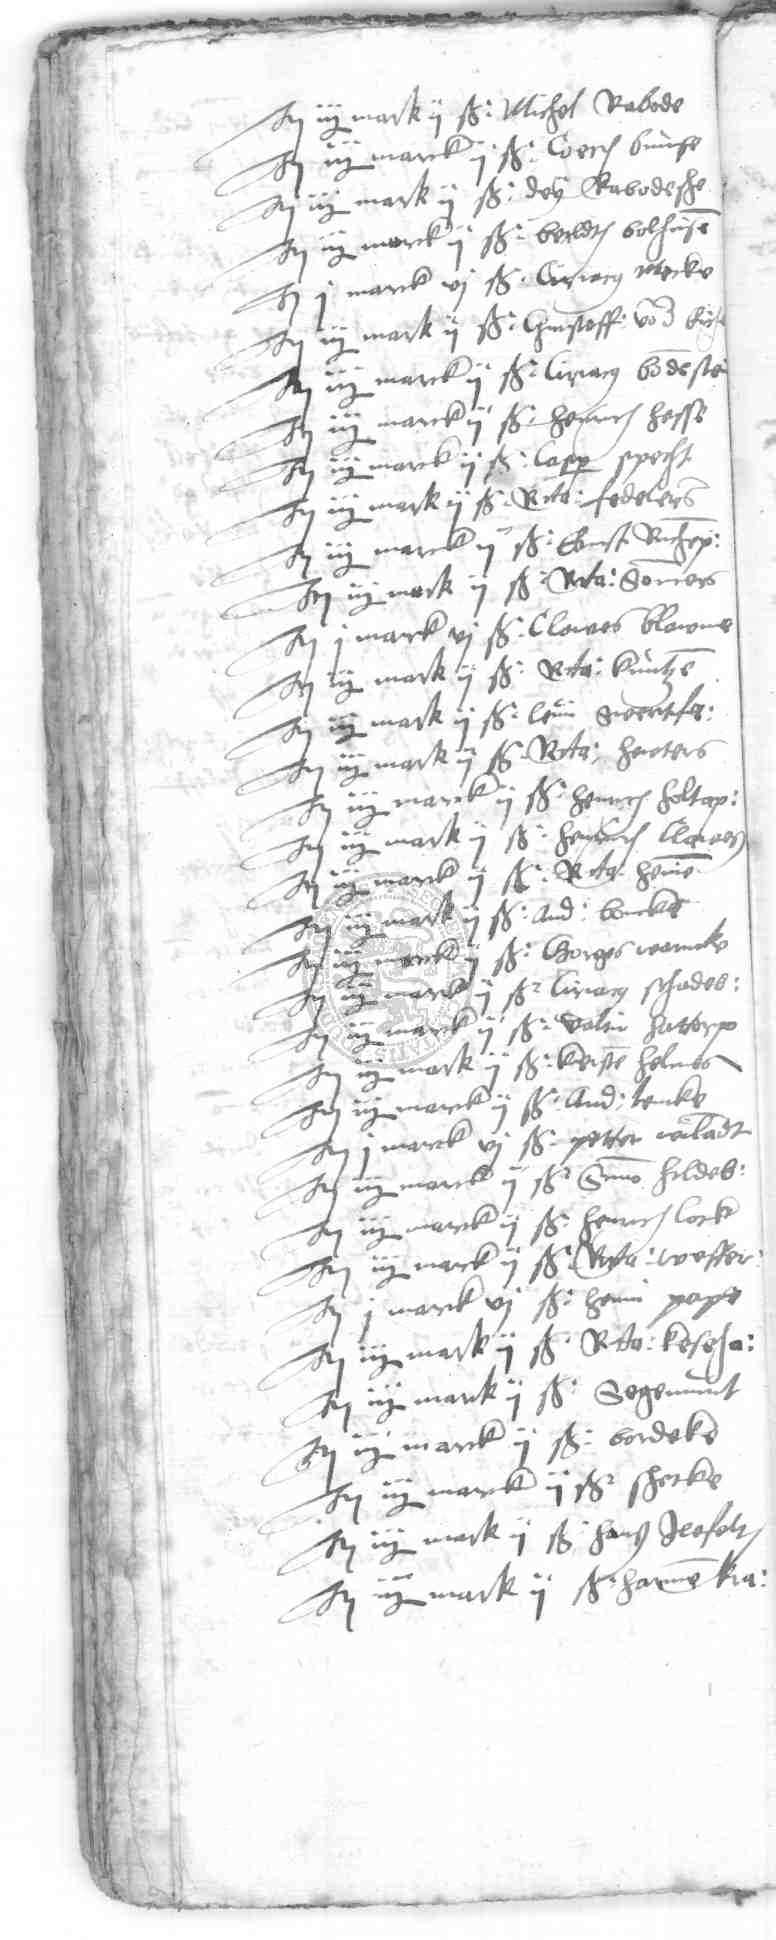 Itͫ iij mark ij ß: Michel Rabode
Itͫ iij marck ij ß: Coerth
Itͫ iij mark ij ß: dey Rabodesche
Itͫ iij marck ij ß: berldth bolhuse
Itͫ j marck vj ß: Ciriacy Mecke
Itͫ iij mark ij ß: Christoff: vo d
Itͫ iij marck ij ß: Ciriacy bodeste
Itͫ iij marck ij ß: henrich hesse
Itͫ iij marck ij ß: Casp specht
Itͫ iij mark ij ß: Rita: fedelers
Itͫ iij marck ij ß: Ernst
Itͫ iij mark ij ß: Rita: Somers
Itͫ j marck vj ß: Clawes blawme
Itͫ iij mark ij ß: Rita: kuntze
Itͫ iij mark ij ß: leui swertfe:
Itͫ iij mark ij ß: Rita: hoeters
Itͫ iij marck ij ß: henrich holtap:
Itͫ iij mark ij ß: henrich Clawes
Itͫ iij marck ij ß: Rita: heine
Itͫ iij mark ij ß: And: boncke
Itͫ iij marck ij ß: Gorges warneke
Itͫ iij marck ij ß: Ciriacy schades:
Itͫ iij marck ij ß: valtin hatterop
Itͫ iij mark ij ß: kerste helmes
Itͫ iij marck ij ß: And: lemke
Itͫ j marck vj ß: petter wiladt
Itͫ iij marck ij ß: Simo hildeb:
Itͫ iij marck ij ß: henrich Cock
Itͫ iij marck ij ß: Rita: wesser:
Itͫ j marck vj ß: heni pape
Itͫ iij mark ij ß: Rita: keseha:
Itͫ iij marck ij ß: Segemunt
Itͫ iij marck ij ß: bordeke
Itͫ iij marck ij ß: sheke
Itͫ iij mark ij ß: hans Ilefelt
Itͫ iij mark ij ß: harme kra: